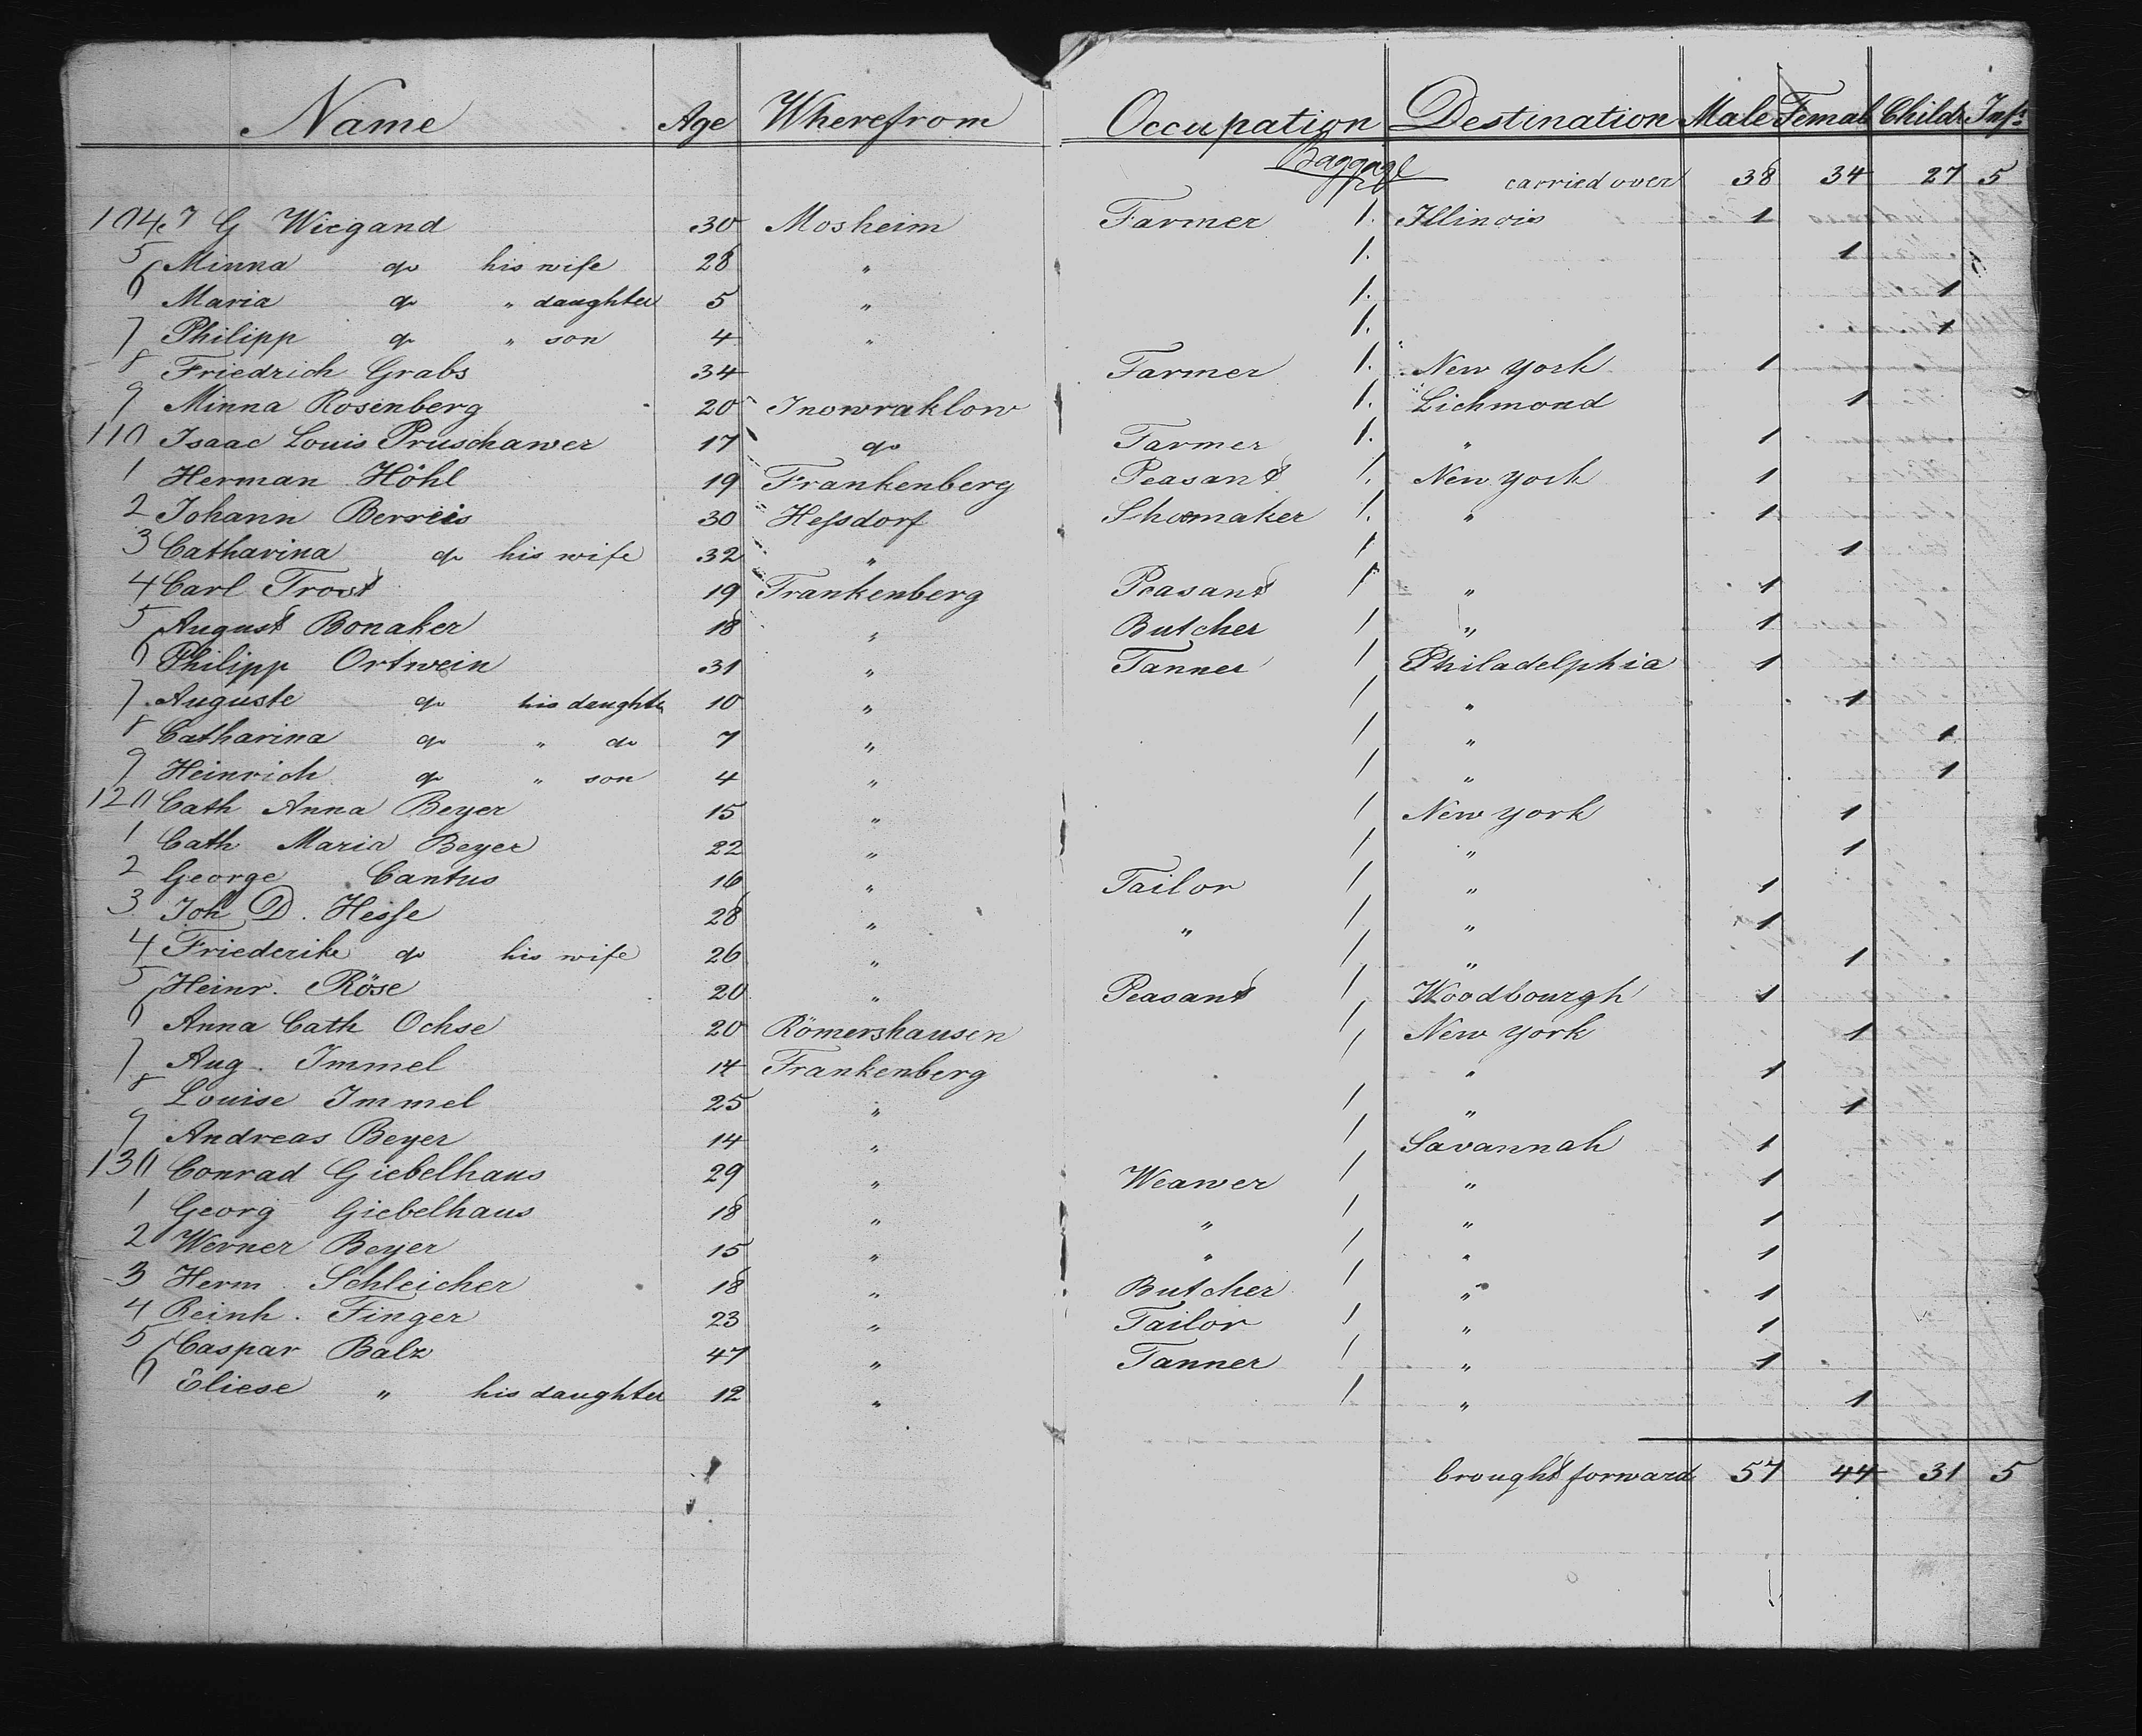 Name Age Wherefrom Occupation Destination Male Femal Childr Inf:
Baggage carried over 38 34 27 5
104 J G Wiegand 30 Mosheim Farmer 1. Illinois 1
5 Minna do his wife 28 " 1. 1
6 Maria do " daughter 5 " 1. 1
7 Philipp do " son 4 " 1. 1
8 Friedrich Grabs 34 Farmer 1. New York 1
9 Minna Rosenberg 20 Inowraklow 1. Lichmond 1
110 Isaac Louis Pruschawer 17 do Farmer 1. " 1
1 Herman Höhl 19 Frankenberg Peasant 1. New York 1
2 Johann Berreis 30 Hessdorf Shomaker 1. " 1
3 Catharina do his wife 32 " 1 1
4 Carl Trost 19 Frankenberg Peasant 1 " 1
5 August Bonaker 18 " Butcher 1 " 1
6 Philipp Ortwein 31 " Tanner 1 Philadelphia 1
7 Auguste do his daughter 10 " 1 " 1
8 Catharina do " do 7 " 1 " 1
9 Heinrich do " son 4 " 1 " 1
120 Cath Anna Beyer 15 " 1 New York 1
1 Cath Maria Beyer 22 " 1 " 1
2 George Cantus 16 " Tailor 1 " 1
3 Joh D. Hesse 28 " " 1 " 1
4 Friederike do his wife 26 " 1 " 1
5 Heinr. Röse 20 " Peasant 1 Woodbourgh 1
6 Anna Cath Ochse 20 Römershausen 1 New York 1
7 Aug. Immel 14 Frankenberg 1 " 1
8 Louise Immel 25 " 1 " 1
9 Andreas Beyer 14 " 1 Savannah 1
130 Conrad Giebelhaus 29 " Weawer 1 " 1
1 Georg Giebelhaus 18 " " 1 " 1
2 Werner Beyer 15 " " 1 " 1
3 Herm. Schleicher 18 " Butcher 1 " 1
4 Reinh. Finger 23 " Tailor 1 " 1
5 Caspar Balz 47 " Tanner 1 " 1
6 Eliese " his daughter 12 " 1 " 1
brought forward 57 44 31 5